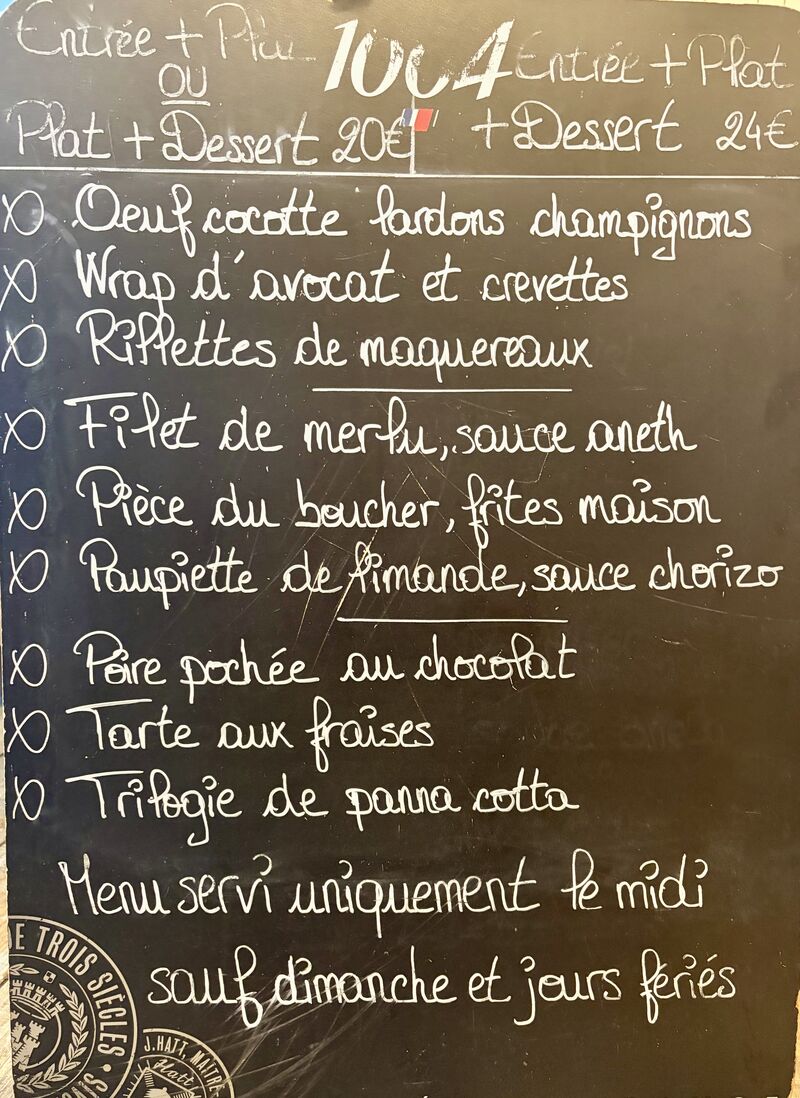 Entrée + Plat
OU
Plat + Dessert 20€
1664
Entrée + Plat
+ Dessert 24€
Oeuf cocotte lardons champignons
Wrap d'avocat et crevettes
Rillettes de maquereaux
Filet de merlu, sauce aneth
Pièce du boucher, frites maison
Paupiette de limande, sauce chorizo
Poire pochée au chocolat
Tarte aux fraises
Trilogie de panna cotta
Menu servi uniquement le midi
sauf dimanche et jours fériés
DE TROIS SIÈCLES
J.HATT, MAÎTRE
Hatt